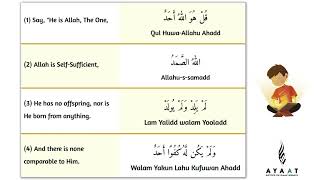 (1) Say, "He is Allah, The One,
قُلْ هُوَ اللهُ أَحَدٌ
Qul Huwa-Allahu Ahadd
(2) Allah is Self-Sufficient,
اللهُ الصَّمَدُ
Allahu-s-samadd
(3) He has no offspring, nor is
He born from anything.
لَمْ يَلِدْ وَلَمْ يُولَدْ
Lam Yalidd walam Yooladd
(4) And there is none
comparable to Him.
وَلَمْ يَكُن لَّهُ كُفُوًا أَحَدٌ
Walam Yakun Lahu Kufuwan Ahadd
AYAAT